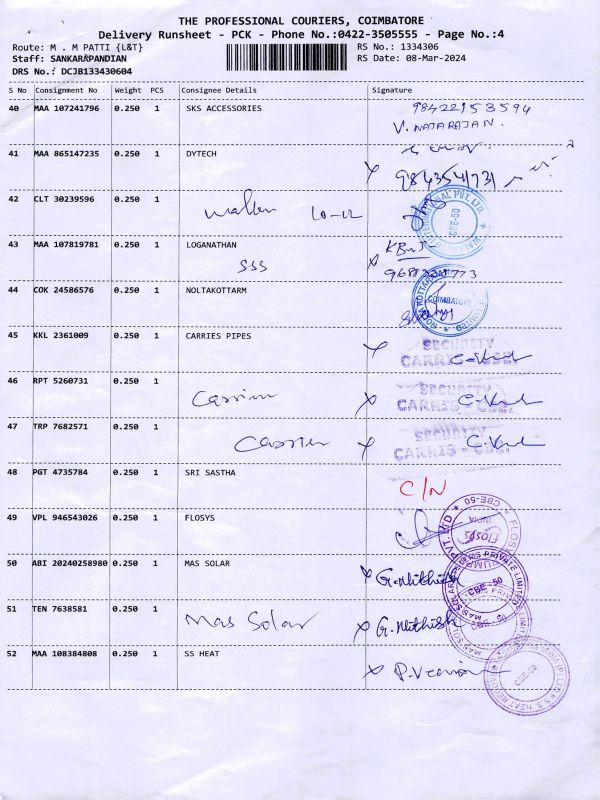 THE PROFESSIONAL COURIERS, COIMBATORE
Delivery Runsheet - PCK - Phone No.:0422-3505555 - Page No.:4
Route: M . M PATTI {L&T}
Staff: SANKARAPANDIAN
DRS No.: DCJB133430604
RS No.: 1334306
RS Date: 08-Mar-2024
S No Consignment No Weight PCS Consignee Details Signature
40 MAA 107241796 0.250 1 SKS ACCESSORIES 98422153594
V. NATARAJAN.
41 MAA 865147235 0.250 1 DYTECH
9843541731
42 CLT 30239596 0.250 1
CBE-50
43 MAA 107819781 0.250 1 LOGANATHAN
SSS
44 COK 24586576 0.250 1 NOLTAKOTTARM
COIMBATORE
45 KKL 2361009 0.250 1 CARRIES PIPES
SECURITY
46 RPT 5260731 0.250 1
SECURITY
47 TRP 7682571 0.250 1
SECURITY
48 PGT 4735784 0.250 1 SRI SASTHA
C/N
49 VPL 946543026 0.250 1 FLOSYS
Flosys
INDIA
CBE-50
50 ABI 20240258980 0.250 1 MAS SOLAR
G. Nithish
CBE-50
51 TEN 7638581 0.250 1 Mas Solar G. Nithish
CBE-50
52 MAA 108384808 0.250 1 SS HEAT
CBE-50